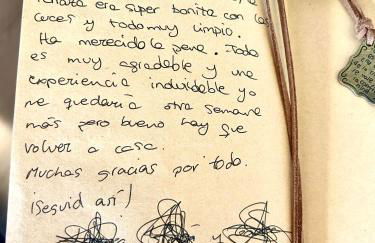 era super bonita con las
luces y todo muy limpio.
Ha merecido la pena. Todo
es muy agradable y una
experiencia inolvidable yo
me quedaría otra semana
más pero bueno hay que
volver a casa.
Muchas gracias por todo.
¡Seguid así!
y